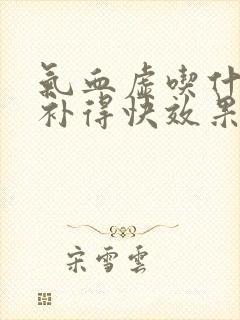 氣血虛喫什
补得快效果
宋雪雲